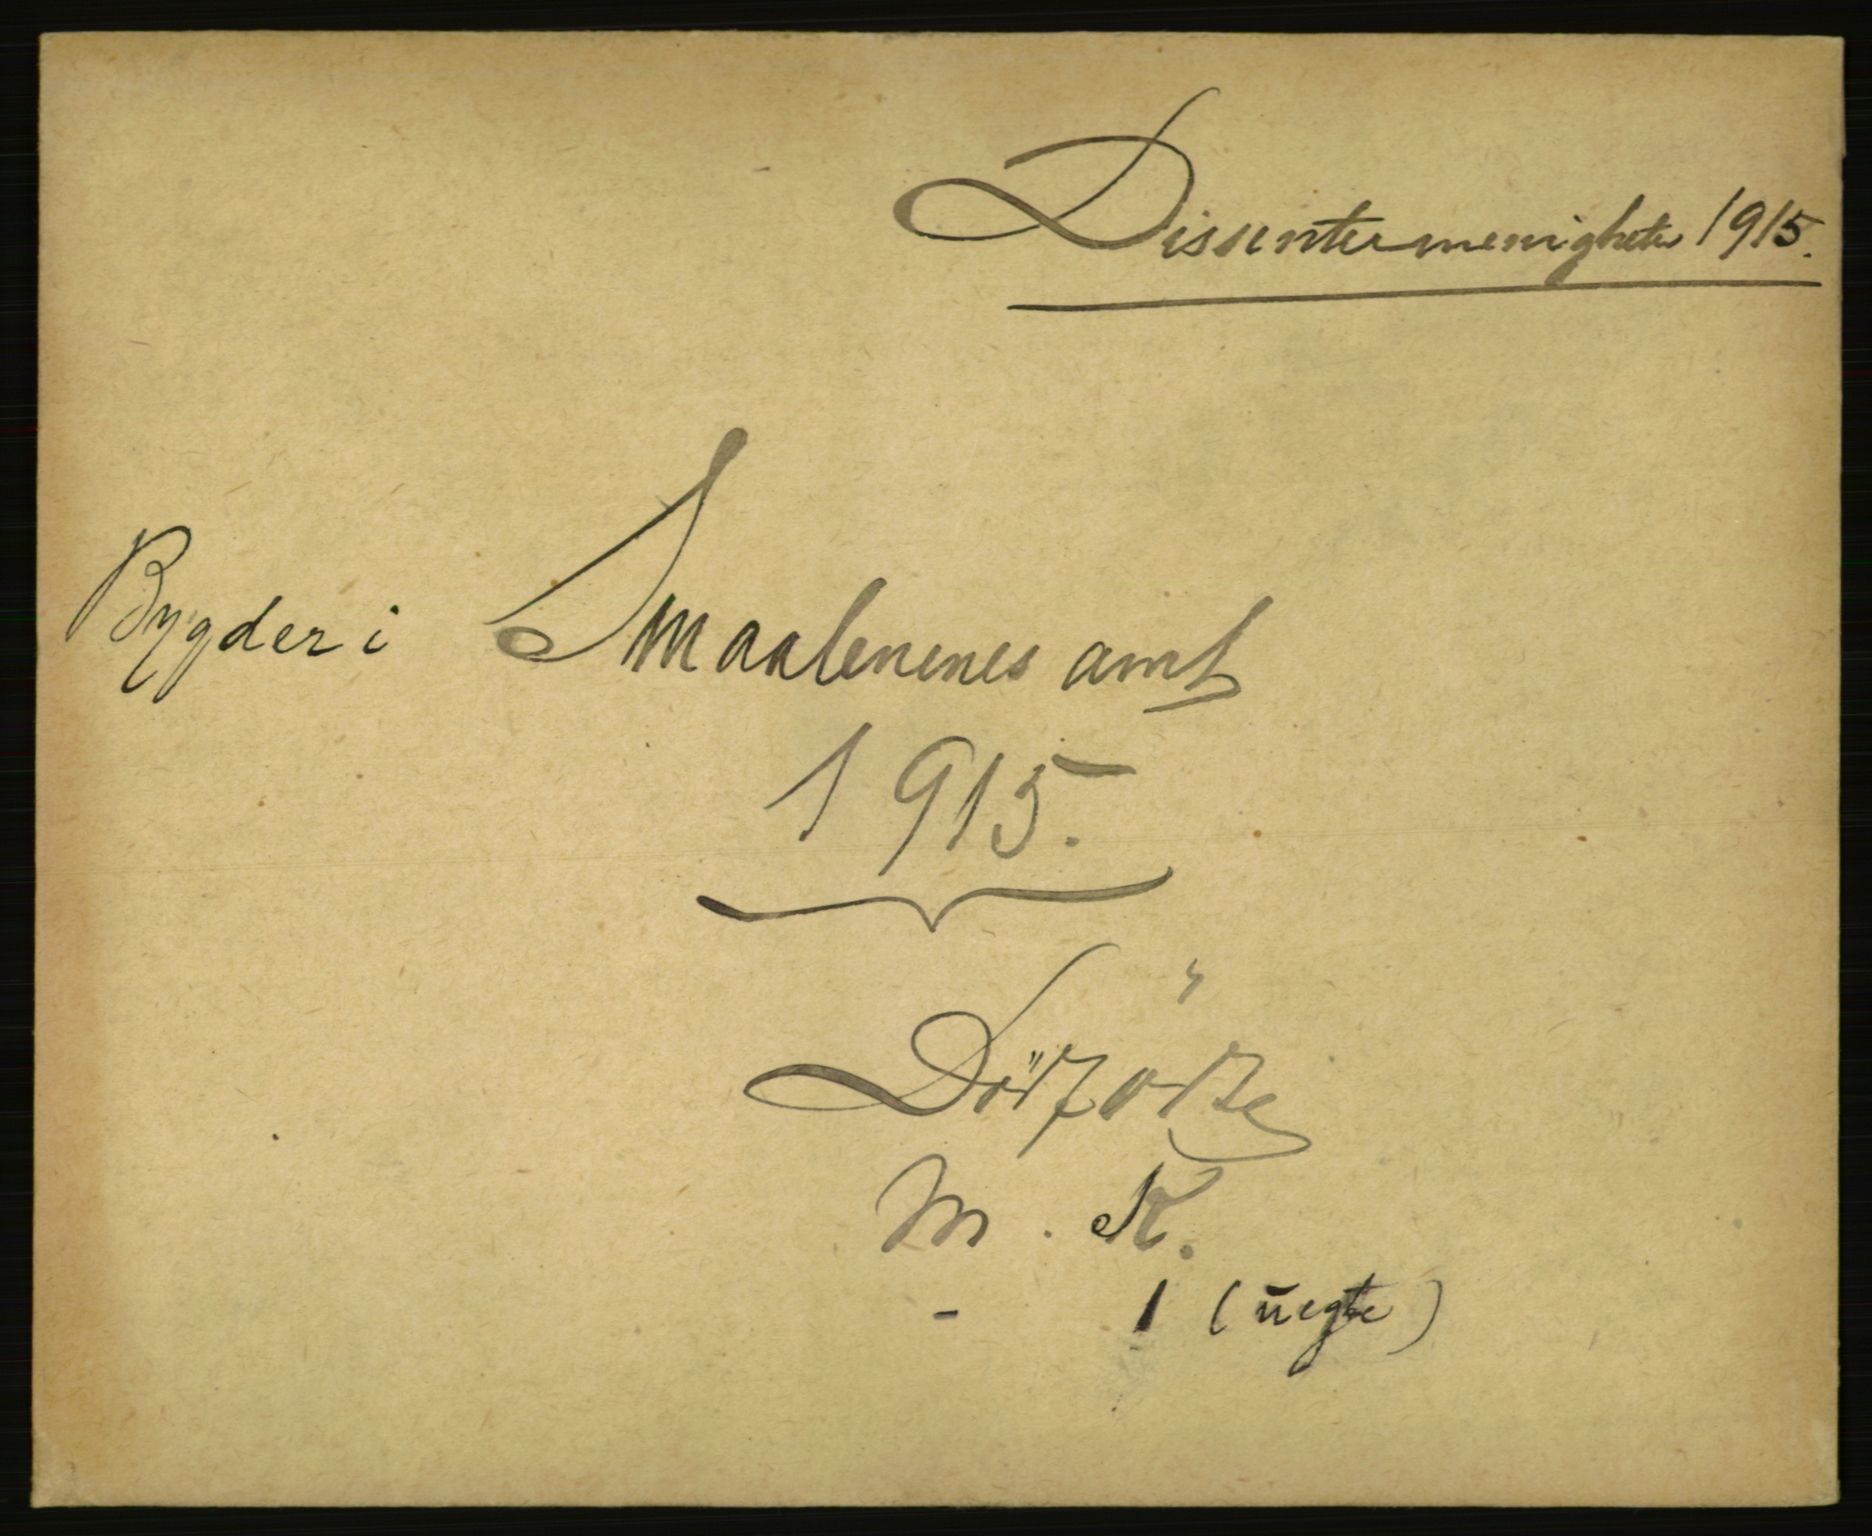 Dissentermenigheter 1915.
Bygder i Smaalenenes amt
1915.
Dödfödte
M. K.
- 1 (uegte)